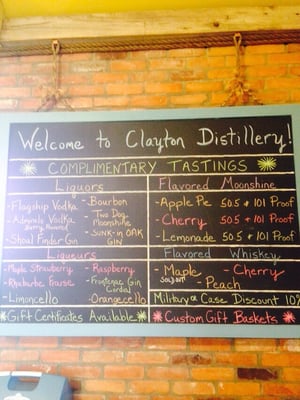 Welcome to Clayton Distillery!
COMPLIMENTARY TASTINGS
Liquors
- Flagship Vodka
- Admirals Vodka
Berry Flavored
- Shoal Finder Gin
- Bourbon
- Two Dog Moonshine
- Sunk in OAK GIN
Flavored Moonshine
- Apple Pie 50.5 & 101 Proof
- Cherry 50.5 & 101 Proof
- Lemonade 50.5 & 101 Proof
Liqueurs
- Maple Strawberry
- Rhubarbe
- Limoncello
- Raspberry
- Frontenac Gin Cordial
- Orangecello
Flavored Whiskey
- Maple
Sold out
- Cherry
- Peach
Military & Case Discount 10%
Gift Certificates Available
Custom Gift Baskets